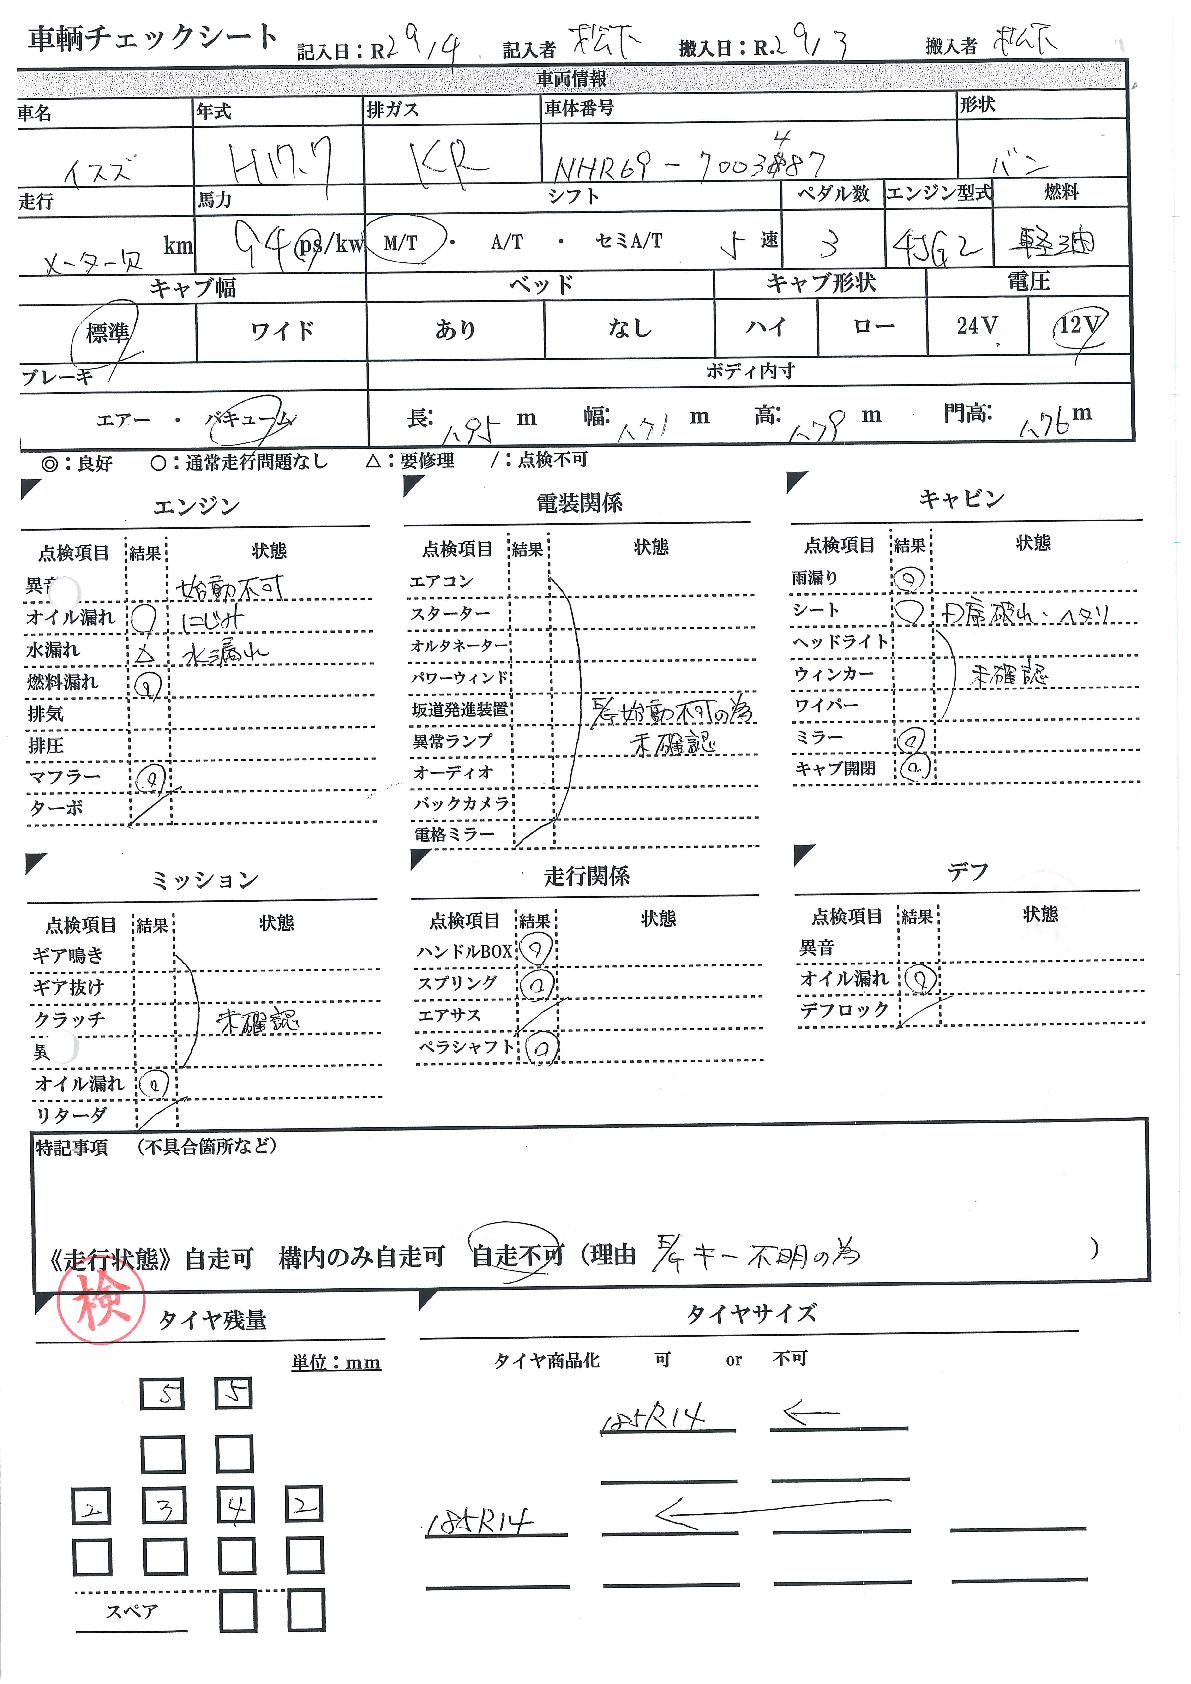 車輌チェックシート 記入日：R2 9/4 記入者 松下 搬入日：R.2 9/3 搬入者 松下
車両情報
車名 年式 排ガス 車体番号 形状
イスズ H17.7 KR NHR69-7003487 バン
走行 馬力 シフト ペダル数 エンジン型式 燃料
メーター欠 km 94 ps/kw M/T ・ A/T ・ セミA/T 5 速 3 4JG2 軽油
キャブ幅 ベッド キャブ形状 電圧
標準 ワイド あり なし ハイ ロー 24V 12V
ブレーキ ボディ内寸
エアー ・ バキューム 長: 1.95 m 幅: 1.71 m 高: 1.79 m 門高: 1.76 m
◎：良好 ○：通常走行問題なし △：要修理 /：点検不可
エンジン
点検項目 結果 状態
異音 始動不可
オイル漏れ ○ にじみ
水漏れ △ 水漏れ
燃料漏れ ◎
排気
排圧
マフラー ◎
ターボ /
電装関係
点検項目 結果 状態
エアコン
スターター
オルタネーター
パワーウィンド
坂道発進装置 E/G始動不可の為
異常ランプ 未確認
オーディオ
バックカメラ
電格ミラー /
キャビン
点検項目 結果 状態
雨漏り ◎
シート ○ D席破れ・ヘタリ
ヘッドライト
ウィンカー 未確認
ワイパー
ミラー ◎
キャブ開閉 ◎
ミッション
点検項目 結果 状態
ギア鳴き
ギア抜け
クラッチ 未確認
異
オイル漏れ ◎
リターダ /
走行関係
点検項目 結果 状態
ハンドルBOX ◎
スプリング ◎
エアサス /
ペラシャフト ◎
デフ
点検項目 結果 状態
異音
オイル漏れ ◎
デフロック /
特記事項 （不具合箇所など）
《走行状態》自走可 構内のみ自走可 自走不可（理由 E/G キー不明の為 ）
検
タイヤ残量
単位：mm
5 5
2 3 4 2
スペア
タイヤサイズ
タイヤ商品化 可 or 不可
185R14 ←
185R14 ←